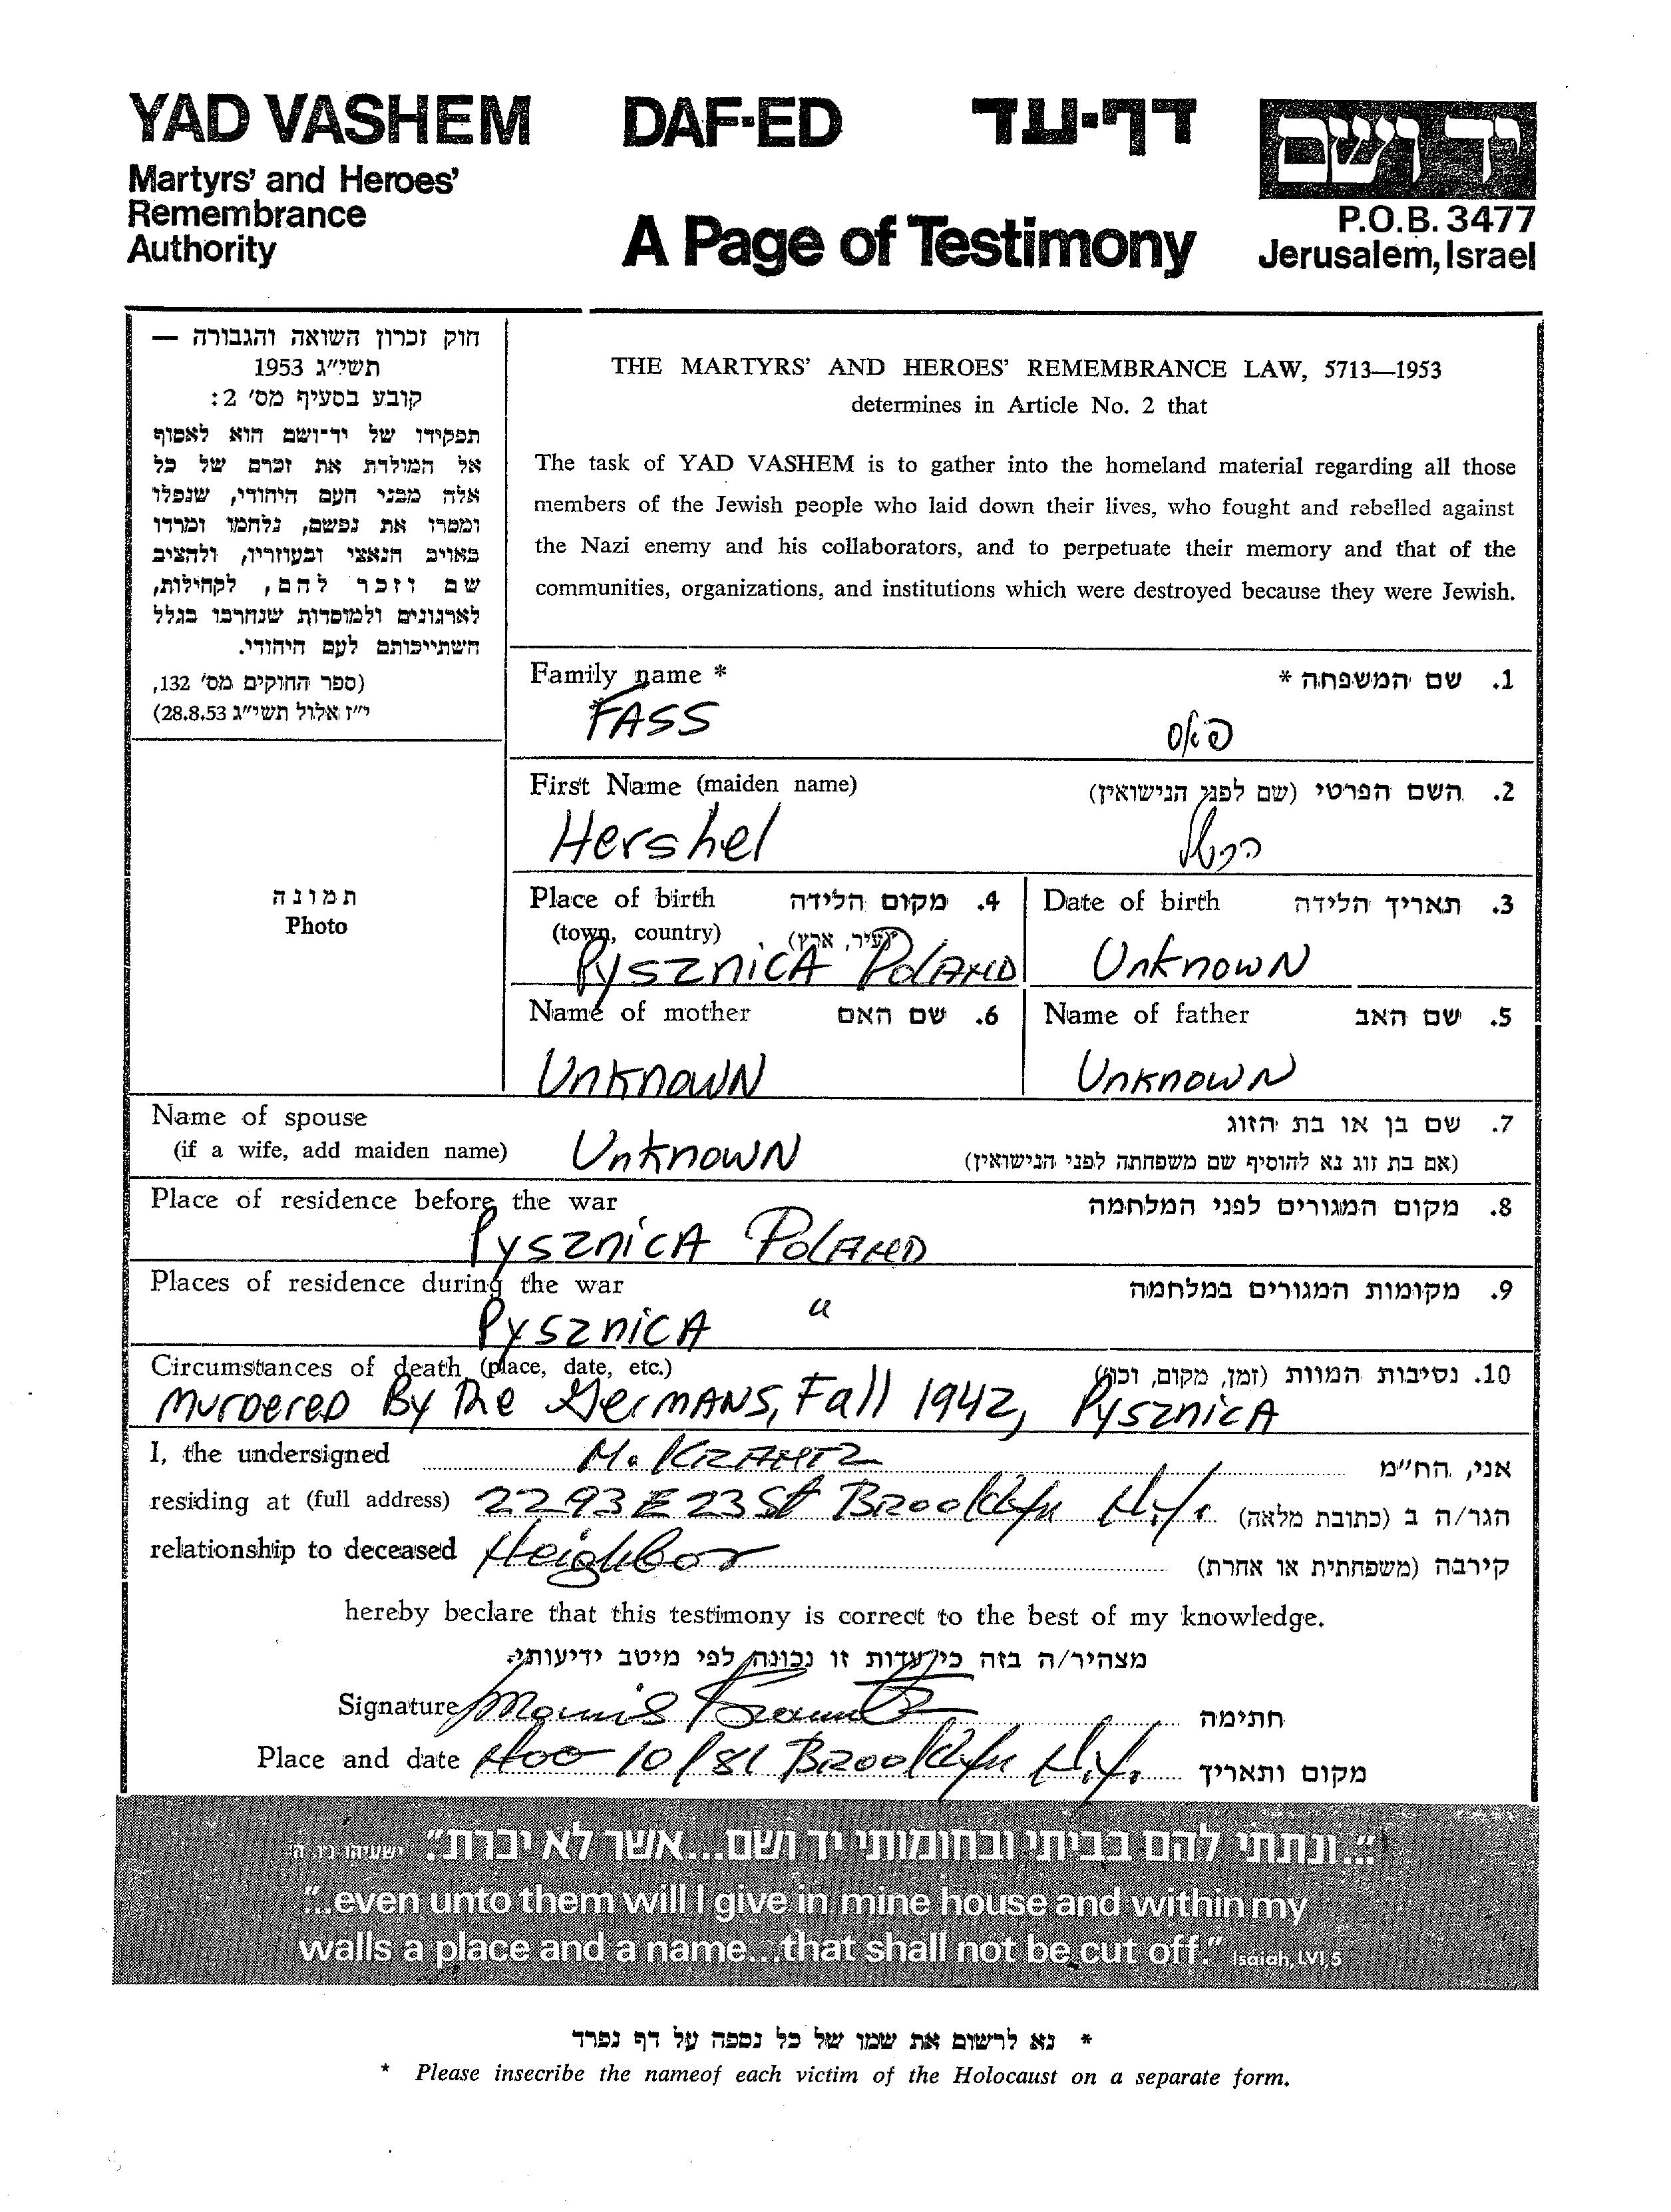 YAD VASHEM DAF-ED דף-עד יד ושם
Martyrs' and Heroes'
Remembrance
Authority
A Page of Testimony
P.O.B. 3477
Jerusalem, Israel
חוק זכרון השואה והגבורה —
תשי"ג 1953
קובע בסעיף מס' 2:
תפקידו של יד-ושם הוא לאסוף
אל המולדת את זכרם של כל
אלה מבני העם היהודי, שנפלו
ומסרו את נפשם, נלחמו ומרדו
באויב הנאצי ובעוזריו, ולהציב
שם וזכר להם, לקהילות,
לארגונים ולמוסדות שנחרבו בגלל
השתייכותם לעם היהודי.
(ספר החוקים מס' 132,
י"ז אלול תשי"ג 28.8.53)
THE MARTYRS' AND HEROES' REMEMBRANCE LAW, 5713—1953
determines in Article No. 2 that
The task of YAD VASHEM is to gather into the homeland material regarding all those
members of the Jewish people who laid down their lives, who fought and rebelled against
the Nazi enemy and his collaborators, and to perpetuate their memory and that of the
communities, organizations, and institutions which were destroyed because they were Jewish.
Family name * 1. שם המשפחה *
FASS פאס
First Name (maiden name) 2. השם הפרטי (שם לפני הנישואין)
Hershel הרשל
תמונה
Photo
Place of birth 4. מקום הלידה
(town, country) (עיר, ארץ)
Pysznica Poland
Date of birth 3. תאריך הלידה
Unknown
Name of mother 6. שם האם
Unknown
Name of father 5. שם האב
Unknown
Name of spouse 7. שם בן או בת הזוג
(if a wife, add maiden name) Unknown (אם בת זוג נא להוסיף שם משפחתה לפני הנישואין)
Place of residence before the war 8. מקום המגורים לפני המלחמה
Pysznica Poland
Places of residence during the war 9. מקומות המגורים במלחמה
Pysznica "
Circumstances of death (place, date, etc.) 10. נסיבות המוות (זמן, מקום, וכו')
Murdered By The Germans, Fall 1942, Pysznica
I, the undersigned M. KRANTZ אני, הח"מ
residing at (full address) 2293 E 23 St Brooklyn N.Y. הגר/ה ב (כתובת מלאה)
relationship to deceased Neighbor קירבה (משפחתית או אחרת)
hereby beclare that this testimony is correct to the best of my knowledge.
מצהיר/ה בזה כי עדות זו נכונה לפי מיטב ידיעותי.
Signature Morris Krantz חתימה
Place and date 10/81 Brooklyn N.Y. מקום ותאריך
"...ונתתי להם בביתי ובחומותי יד ושם...אשר לא יכרת". ישעיהו נ"ו, ה'
"...even unto them will I give in mine house and within my
walls a place and a name...that shall not be cut off." Isaiah, LVI, 5
* נא לרשום את שמו של כל נספה על דף נפרד
* Please insecribe the nameof each victim of the Holocaust on a separate form.